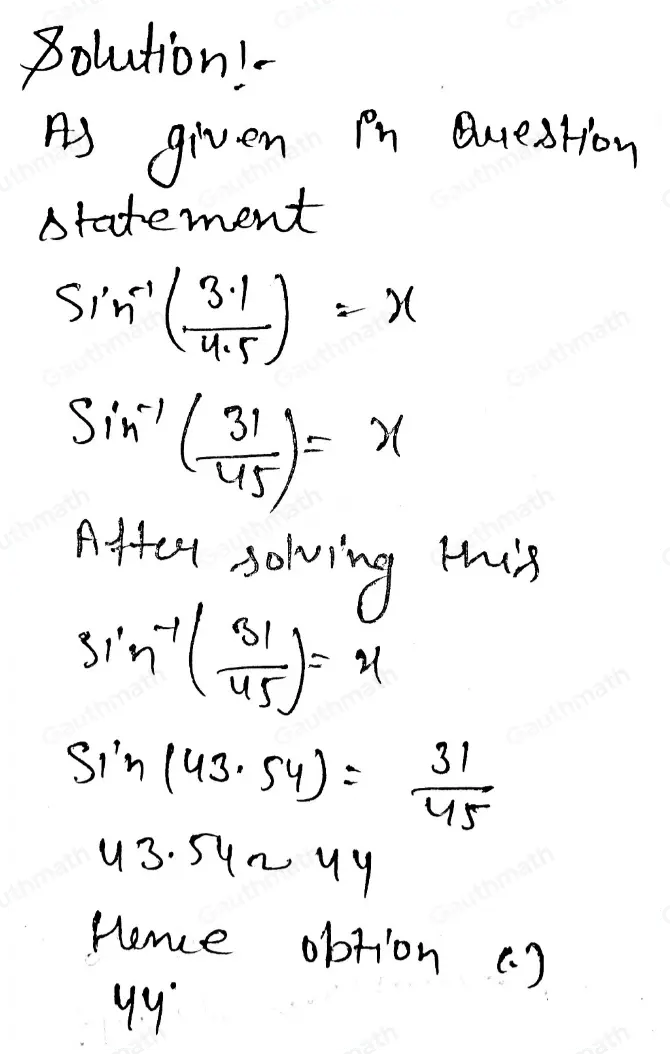 Solution:-
As given in Question
statement
Sin⁻¹(3.1/4.5) = x
Sin⁻¹(31/45) = x
After solving this
sin⁻¹(31/45) = x
Sin(43.54) = 31/45
43.54 ~ 44
Hence obtion c.)
44°